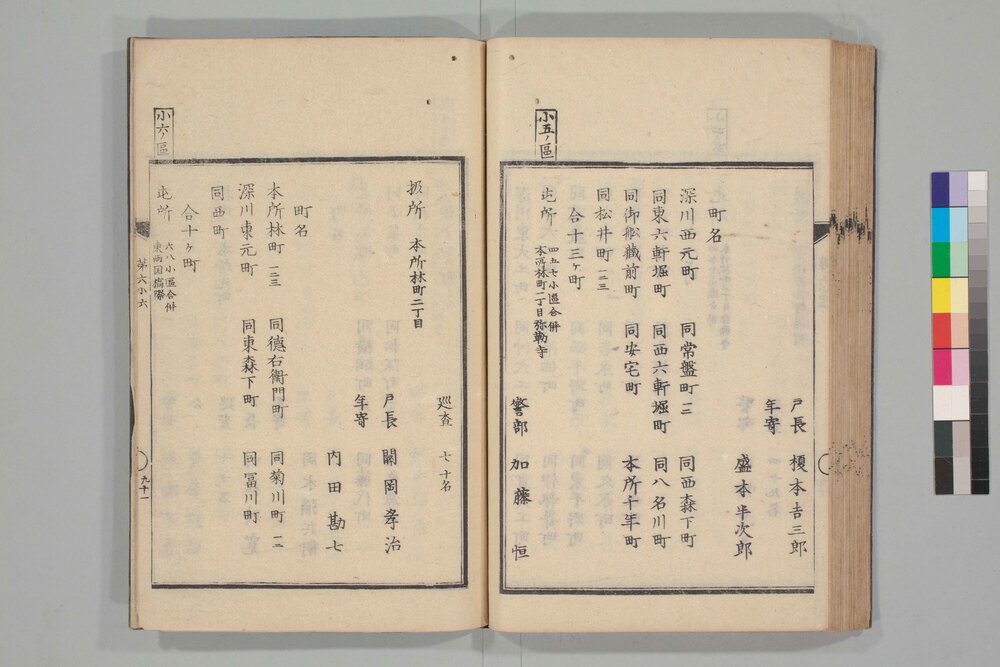 戸長 榎本吉三郎
年寄
盛本半次郎
町名
深川西元町 同常盤町一二 同西森下町
同東六軒堀町 同西六軒堀町 同八名川町
同御船蔵前町 同安宅町 本所千年町
同松井町一二三
合十三ヶ町
小五ノ區
屯所 四五七小區合併 本所林町一丁目弥勒寺
警部 加藤恒
巡査 七十名
扱所 本所林町二丁目
戸長 關岡孝治
年寄
内田勘七
町名
本所林町一二三 同徳右衞門町 同菊川町一二
深川東元町 同東森下町 同冨川町
同西町
合十ヶ町
小六ノ區
屯所 六八小區合併 東両国橋際
第六小六
九十一